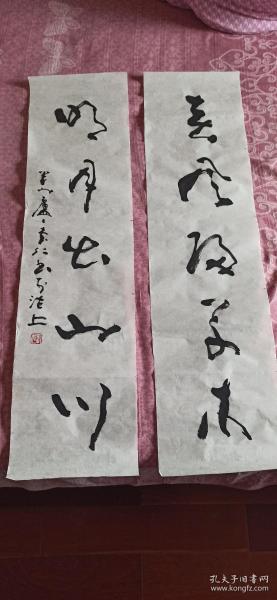 春风归草木
明月出山川
沽上
孔夫子旧书网